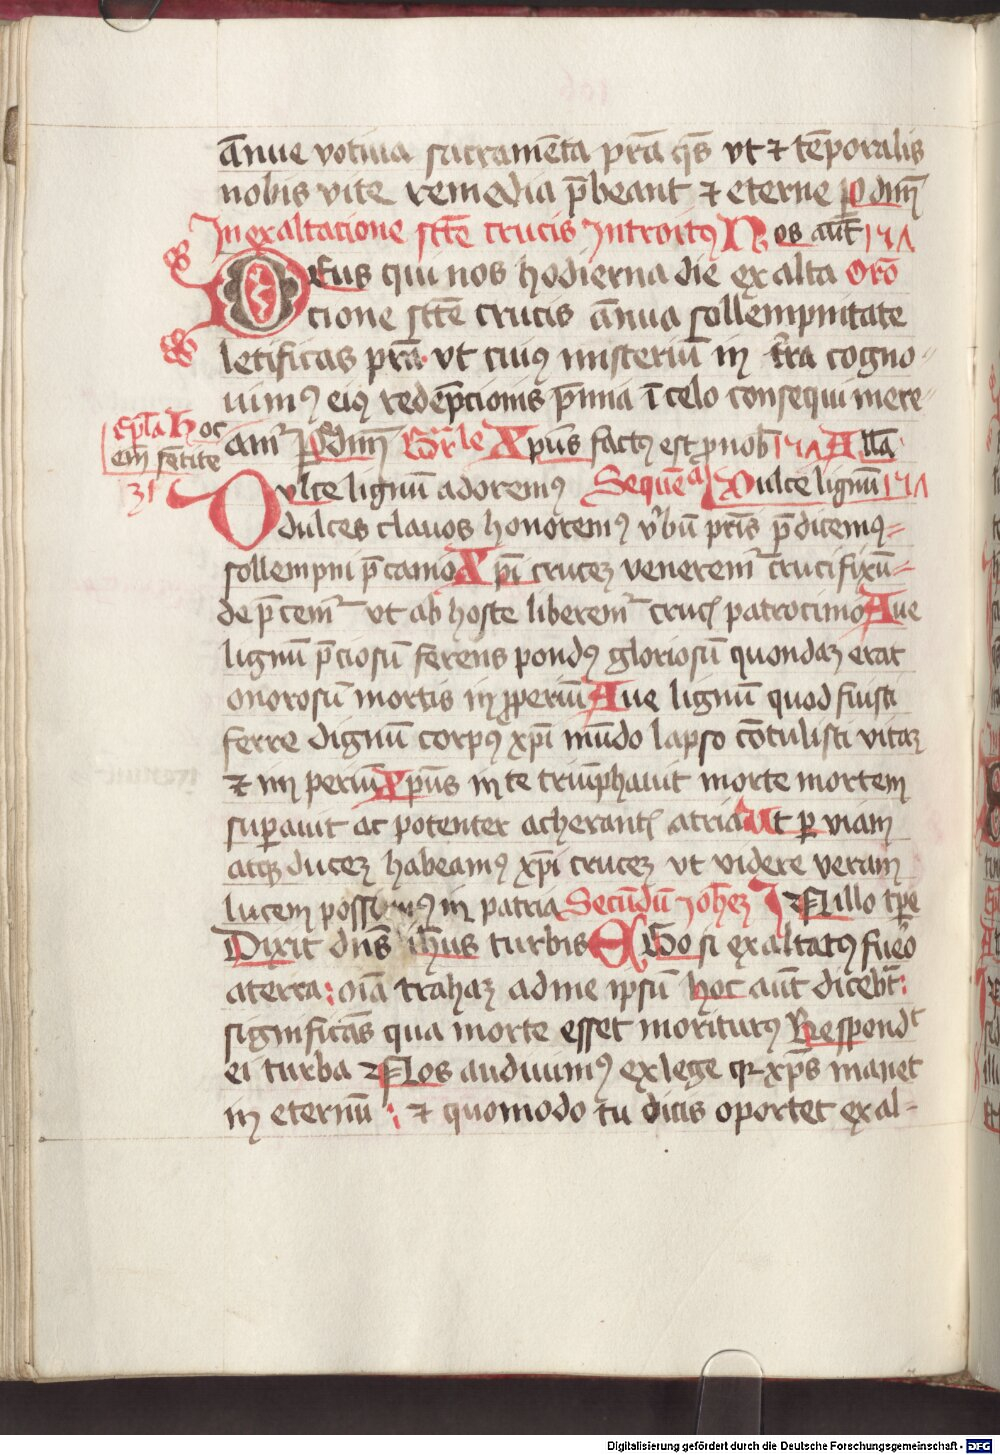 āńue votiua sacramēta prā q̄s vt ⁊ tēporalis
nobis vite remedia p̄beant ⁊ eterne p dn̄m
In exaltacione sc̄tē crucis Introitꝰ Nos aūt 171
Deus qui nos hodierna die exalta Orō
cione sc̄tē crucis āńua sollempnitate
letificas prā vt cuiꝰ misteriū in tʳra cogno
uimꝰ eiꝰ redēpcionis p̄mia ī celo consequi mere
Epl̄a Hoc
em̄ sētite
31
amʳ p dn̄m Gr̄le Xpūs factꝰ est ꝓ nob̄ 171 All̄a
Dulce lignū adoremꝰ Sequēa Dulce lignū 171
dulces clauos honoremꝰ v̓bū prīs p̄dicemꝰ
sollempni p̄camio Xpī crucez veneremʳ crucifixū
de p̄cemʳ vt ab hoste liberemʳ crucꝭ patrocinio Aue
lignū p̄ciosū ferens pondꝰ gloriosū quondaz erat
onorosū mortis inꝓperiū Aue lignū quod fuisti
ferre dignū corpꝰ xpī mūdo lapso cōtulisti vitaz
⁊ imperiū Xpūs in te triūphauit morte mortem
suꝑauit ac potenter acherantꝭ atria Ut ꝑ viam
atqꝫ ducez habeamꝰ xpī crucez vt videre veram
lucem possimꝰ in patria Secūdū Joh̄ez In illo tp̄e
Dixit dn̄s ih̄us turbis Ego si exaltatꝰ fuero
a terra: oīa trahaz ad me ipsū hoc aūt diceb̄t:
significās qua morte esset moriturꝰ Respondᵗ
ei turba Nos audiuimꝰ ex lege qꝛ xp̄s manet
in eternū : ⁊ quomodo tu dicis oportet exal-
Digitalisierung gefördert durch die Deutsche Forschungsgemeinschaft - DFG